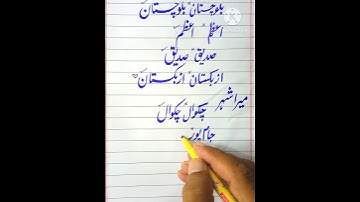 بلوچستان بلوچستان
اعظم اعظم
صدیق صدیق
ازبکستان ازبکستان
میرا شہر
چکوال چکوال
جام پور